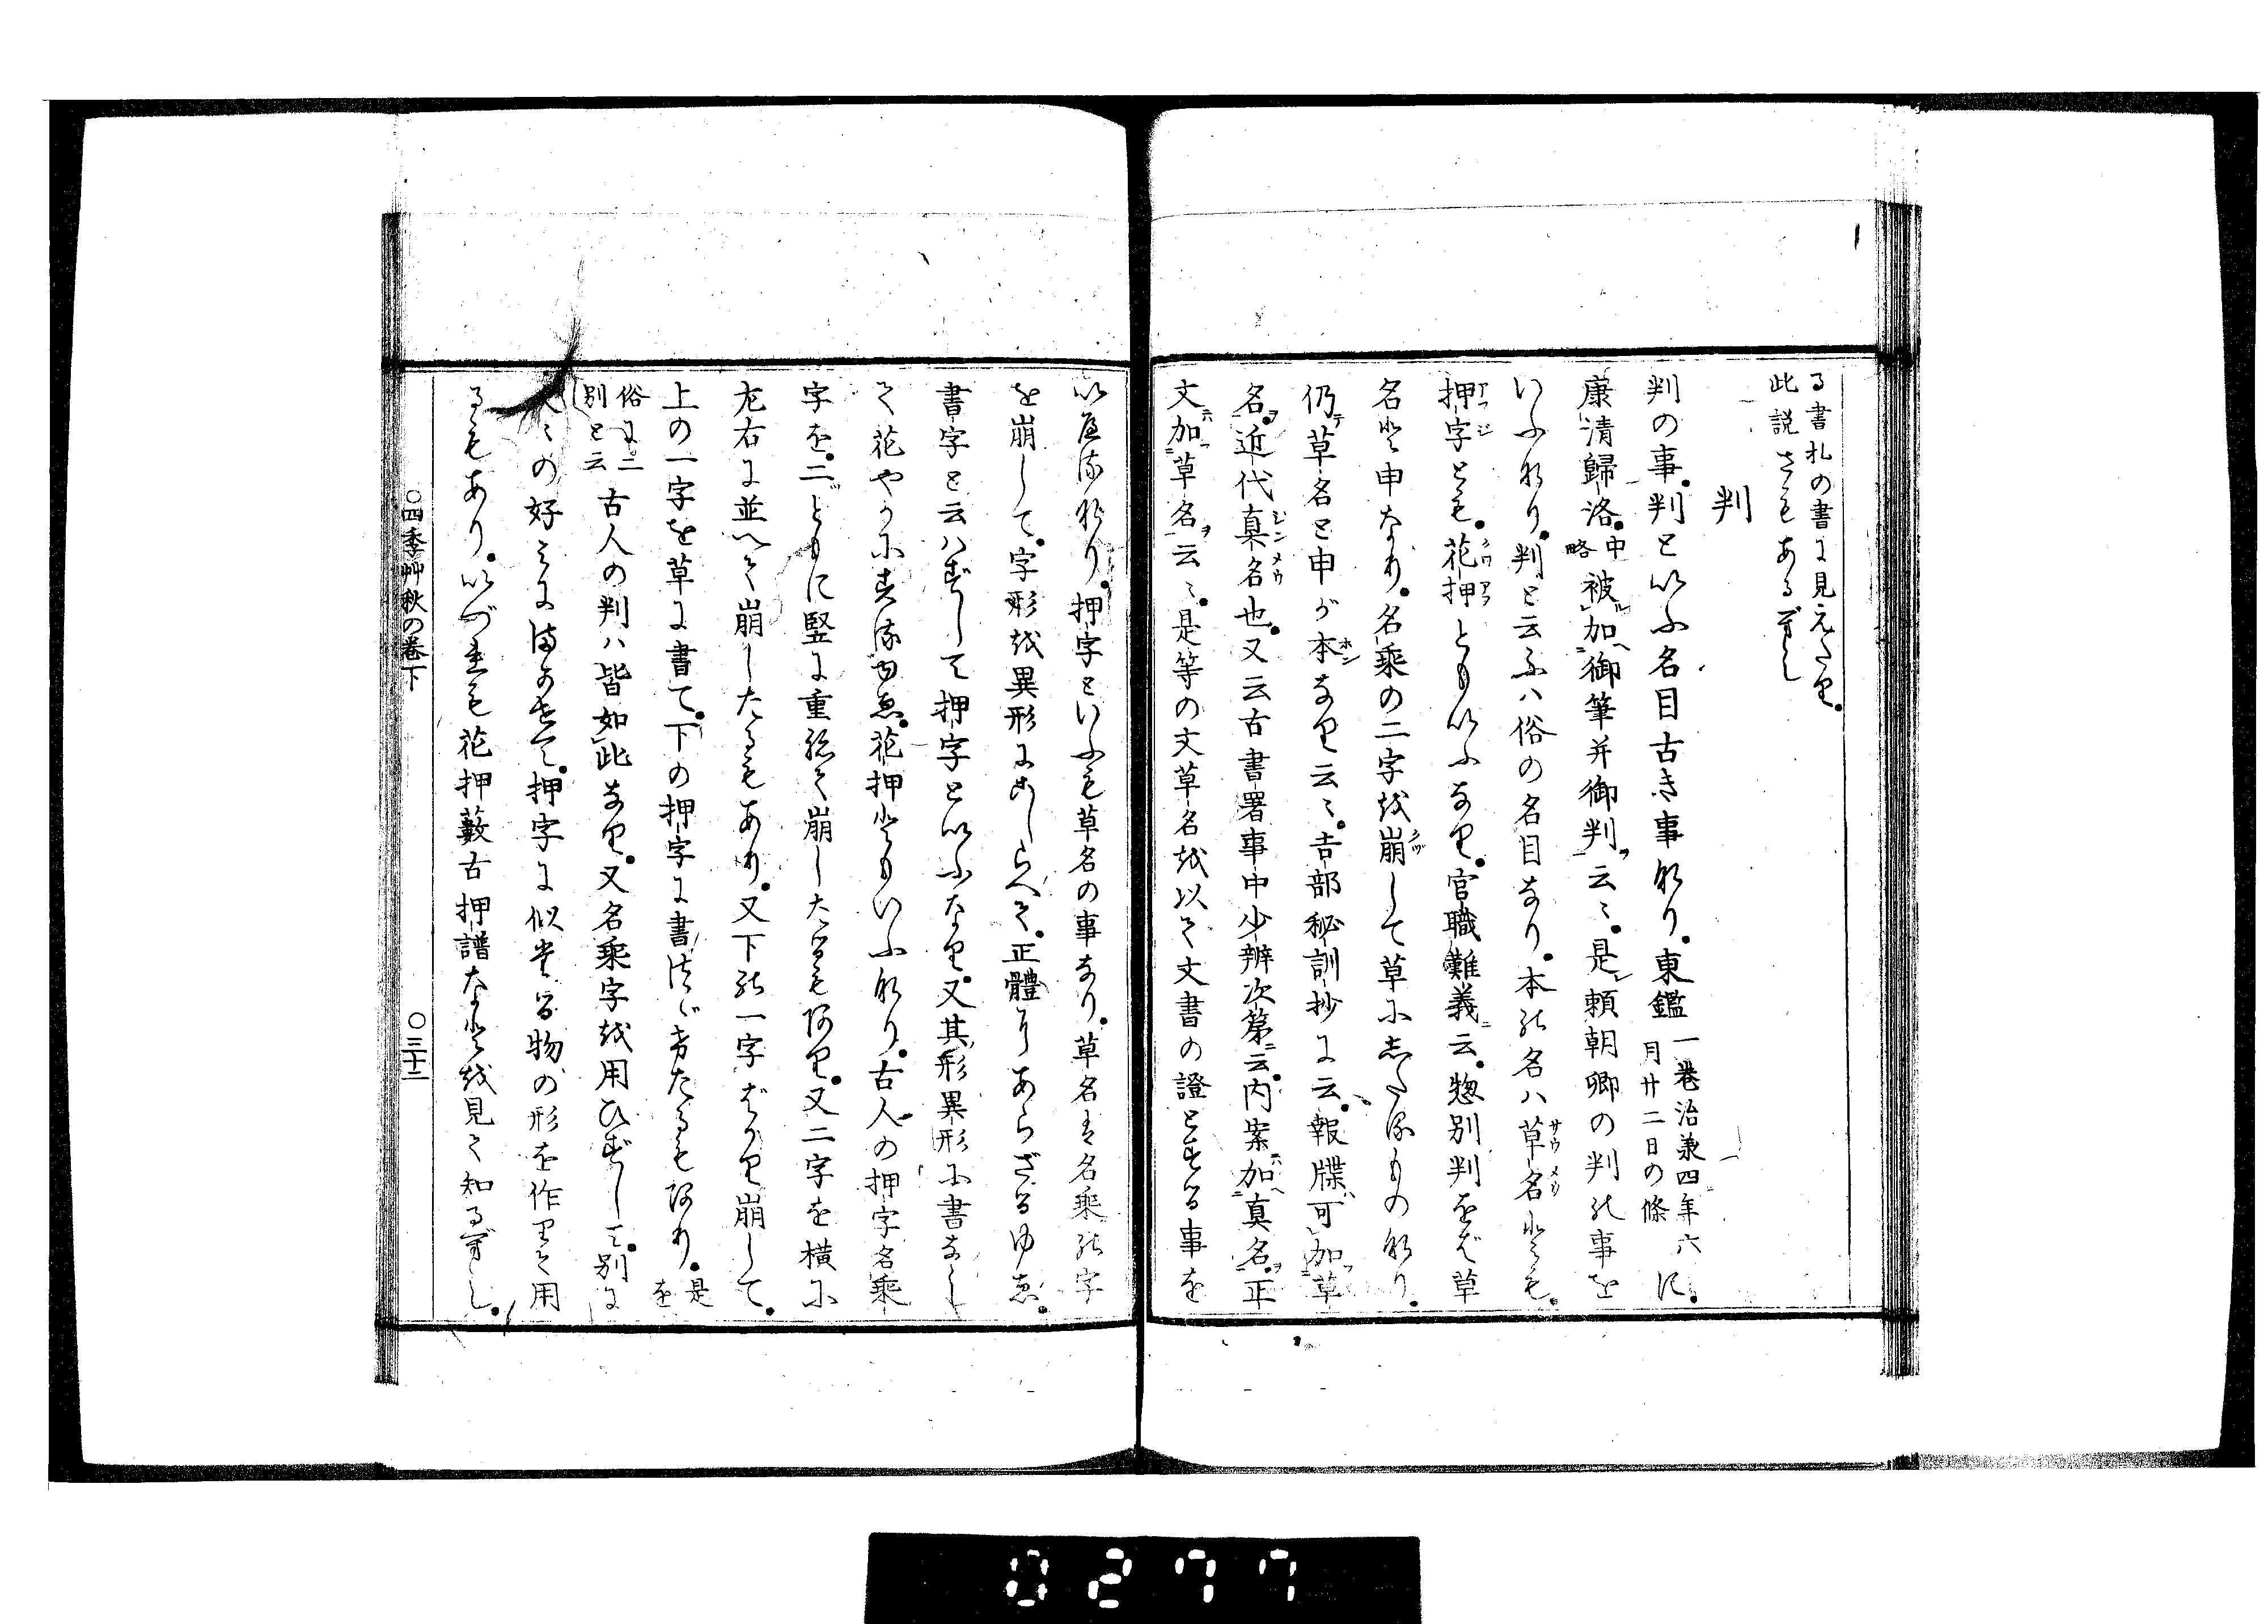 る書札の書に見えたり。
此説さもあるべし
判
判の事。判といふ名目古き事なり。東鑑一巻治承四年六月廿二日の條に。
康清歸洛。中略被加御筆并御判云〻。是頼朝卿の判の事を
いふなり。判と云ふハ俗の名目なり。本の名ハ草名とも。
押字とも。花押ともいふなり。官職難義云。惣別判をば草
名と申なり。名乗の二字を崩して草にしたるもの なり。
仍草名と申が本なり云〻。吉部秘訓抄に云。報牒可加草
名。近代真名也。又云古書署事中少辨次第云。内案加真名。正
文加草名云〻。是等の文草名を以て文書の證とする事を
いへるなり。押字といふも草名の事なり。草名は名乗の字
を崩して。字形を異形にこしらへて。正體にあらざるゆゑ。
書字と云ハずして押字といふなり。又其形異形に書なし
て花やかにするゆゑ。花押ともいふなり。古人の押字名乗
字を。二ともに竪に重ねて崩したるもあり。又二字を横に
左右に並べて崩したるもあり。又下の一字ばかり崩して。
上の一字を草に書て。下の押字に書つゞけたるもあり。是を
俗に二
別と云古人の判ハ皆如此なり。又名乗字を用ひずして。別に
人〻の好みにまかせて。押字に似たる物の形を作りて用
るもあり。いづれも花押藪古押譜などを見て知るべし。
○四季艸秋の巻下
○三十二
0277